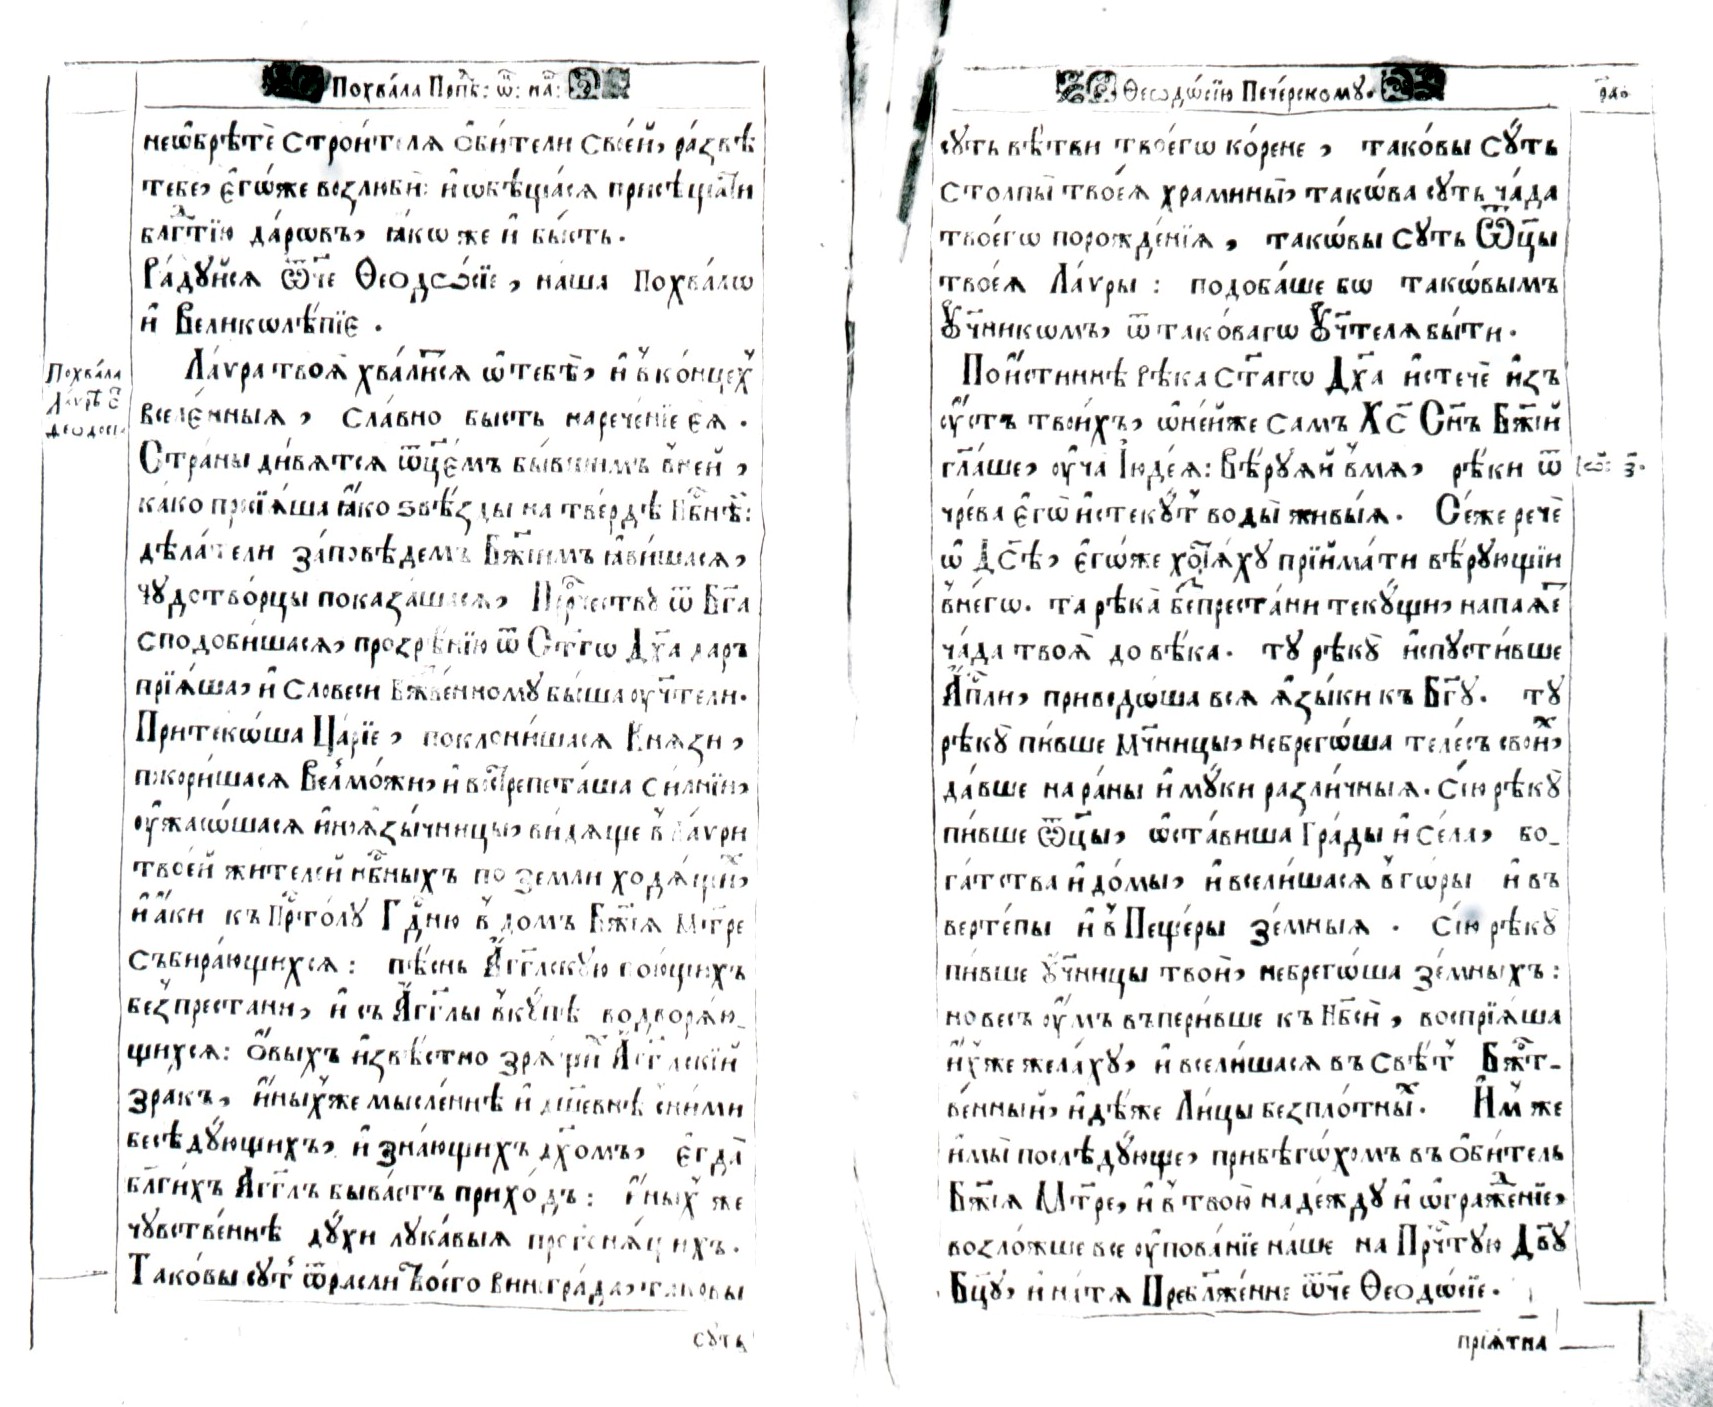 Похва́ла Прпⷣбⷩ: ѿ: на́ш:
неѡ҆брѣ́тѐ Строи́теля Ѻ҆би́тели Свое́й, ра́звѣ
тебѐ, є҆гѡ́же возлюбѝ: и҆ ѡ҆бѣща́сѧ присѣща́ти
блгⷣтїю да́рѡвъ, ꙗ҆́коже и҆ бы́сть.
Ра́дꙋйсѧ Ѿ҃че Ѳеодо́сїе, на́ша Похва́лѡ
и҆ Великѡлѣ́пїе.
Похва́ла
Ла́ѵрѣ є҃
Ѳеодосі:
Ла́ѵра твоѧ̀ хва́литсѧ ѡ҆ тебѣ̀, и҆ в̾ ко́нцехъ
вселе́нныѧ, Сла́вно бысть нарече́нїе єѧ̀.
Стра́ны ди́вѧтсѧ Ѻ҆ц҃е́мъ бы́вшимъ в̾ не́й,
ка́ко прїѧ́ша ꙗ҆́ко ѕвѣ́зды на тве́рдѣ Нб҃нѣ̀:
дѣ́латели за́повѣдемъ Бж҃іимъ ꙗ҆ви́шасѧ,
чꙋдотво́рцы показа́шасѧ, Прⷪ҇ро́чествꙋ ѿ Бг҃а
сподоби́шасѧ, прозрѣ́нїю ѿ Ст҃гѡ Дх҃а даръ
прїѧ́ша, и҆ Словеси Бж҃е́нномꙋ бы́ша ᲂу҆чт҃ели.
Притекѡ́ша Ца́рїе, поклони́шасѧ Кнѧ́зи,
покори́шасѧ Велмо́жи, и҆ востⷬ҇репета́ша Си́лнїи,
ᲂу҆жасѡ́шасѧ и҆ноѧзы́чницы, ви́дѧще в̾ Ла́ѵри
твое́й жи́телей нб҃ныхъ по земли ходѧ́щихъ,
и҆ а҆́ки къ Прⷭ҇то́лꙋ Гдⷭ҇ню в̾ домъ Бж҃іѧ Мт҃ре
Събира́ющихсѧ: пѣ́снь А҆́гг҃лскꙋю пою́щихъ
безпреста́ни, и҆ съ А҆́гг҃лы вкꙋ́пѣ водворѧ́ю_
щихсѧ: Ѻ҆́выхъ и҆звѣ́стно зрѧ́щи А҆́гг҃лскїй
зра́къ, и҆́ныхъже мысле́ннѣ и҆ дш҃е́внѣ с ни́ми
бесѣ́дꙋющихъ, и҆ зна́ющихъ дх҃омъ, є҆гда̀
бл҃ги́хъ А҆́гг҃лъ быва́етъ прихо́дъ: и҆́ныхъ же
чꙋвстве́ннѣ дꙋ́хи лꙋка́выѧ прогонѧ́щихъ.
Тако́вы сꙋ́ть ѿ́расли Твоего̀ вингра́да, тако́вы
сꙋть
Ѳеодѡ́сїю Пече́рскомꙋ.
рло
сꙋть вѣ́тви твоегѡ̀ ко́рене, тако́вы Сꙋ́ть
Столпы̀ твоеѧ̀ храмины̀, такѡ́ва сꙋть ча́да
твоегѡ̀ порожде́нїѧ, такѡ́вы Сꙋть Ѿц҃ы
твоеѧ̀ Ла́ѵры: подоба́ше бо такѡ́вымъ
Оу҆чн҃икѡмъ, ѿ тако́вагѡ Оу҆чт҃елѧ бы́ти.
По и҆́стиннѣ рѣ́ка Ст҃а́гѡ Дх҃а и҆стечѐ и҆зъ
ᲂу҆́стъ твои́хъ, ѡ҆ не́йже Самъ Хс҃ Сн҃ъ Бж҃ій
гл҃а́ше, ᲂу҆ча̀ І҆юде́ѧ: Вѣ́рꙋѧй в̾ мѧ, рѣ́ки ѿ
Іѡ҃: з҃.
чре́ва є҆гѡ̀ и҆стекꙋ́тъ воды̀ живы́ѧ. Се́же речѐ
ѡ҆ Дс҃ѣ, є҆гѡ́же хотѧ́хꙋ прїйма́ти вѣ́рꙋющїи
в̾ не́гѡ. та рѣка̀ беспреста́ни текꙋ́щи, напаѧ́е
ча́да твоѧ̀ до вѣ́ка. тꙋ рѣкꙋ̀ и҆спꙋсти́вше
А҆пⷭ҇ли, приведѡ́ша всѧ ѧ҆зы́ки къ Бг҃ꙋ. тꙋ
рѣкꙋ̀ пи́вше Мч҃нницы, небрегѡ́ша теле́съ свои́хъ,
да́вше на ра́ны и҆ мꙋ́ки разли́чныѧ. Сі́ю рѣкꙋ̀
пи́вше Ѿц҃ы, ѡ҆ста́виша Гра́ды и҆ Се́ла, бо_
га́тства и҆ до́мы, и҆ всели́шасѧ в̾ гѡ́ры и҆ въ
верте́пы и҆ в̾ Пеще́ры зе́мныѧ. Сі́ю рѣкꙋ̀
пи́вше ᲂу҆чн҃ицы твоѝ, небрегѡ́ша зе́мныхъ:
но весь ᲂу҆́мъ въпери́вше къ Нб҃сѝ, воспрїѧ́ша
и҆́хже жела́хꙋ, и҆ всели́шасѧ въ Свѣ́тъ Бжⷭ҇т_
ве́нный, и҆дѣ́же Ли́цы безпло́тны́хъ. И҆̀мже
и҆ мы̀ послѣ́дꙋюще, прибѣгѡ́хомъ въ Ѻ҆би́тель
Бж҃іѧ Мт҃ре, и҆ в̾ твою̀ наде́ждꙋ и҆ ѡ҆гражде́нїе,
возло́жше все ᲂу҆пова́нїе на́ше на Прⷱ҇тꙋю Дв҃ꙋ
Бц҃ꙋ, и҆ на тѧ Пребл҃же́нне Ѿ҃че Ѳеодѡ́сїе.
прїѧ́тна